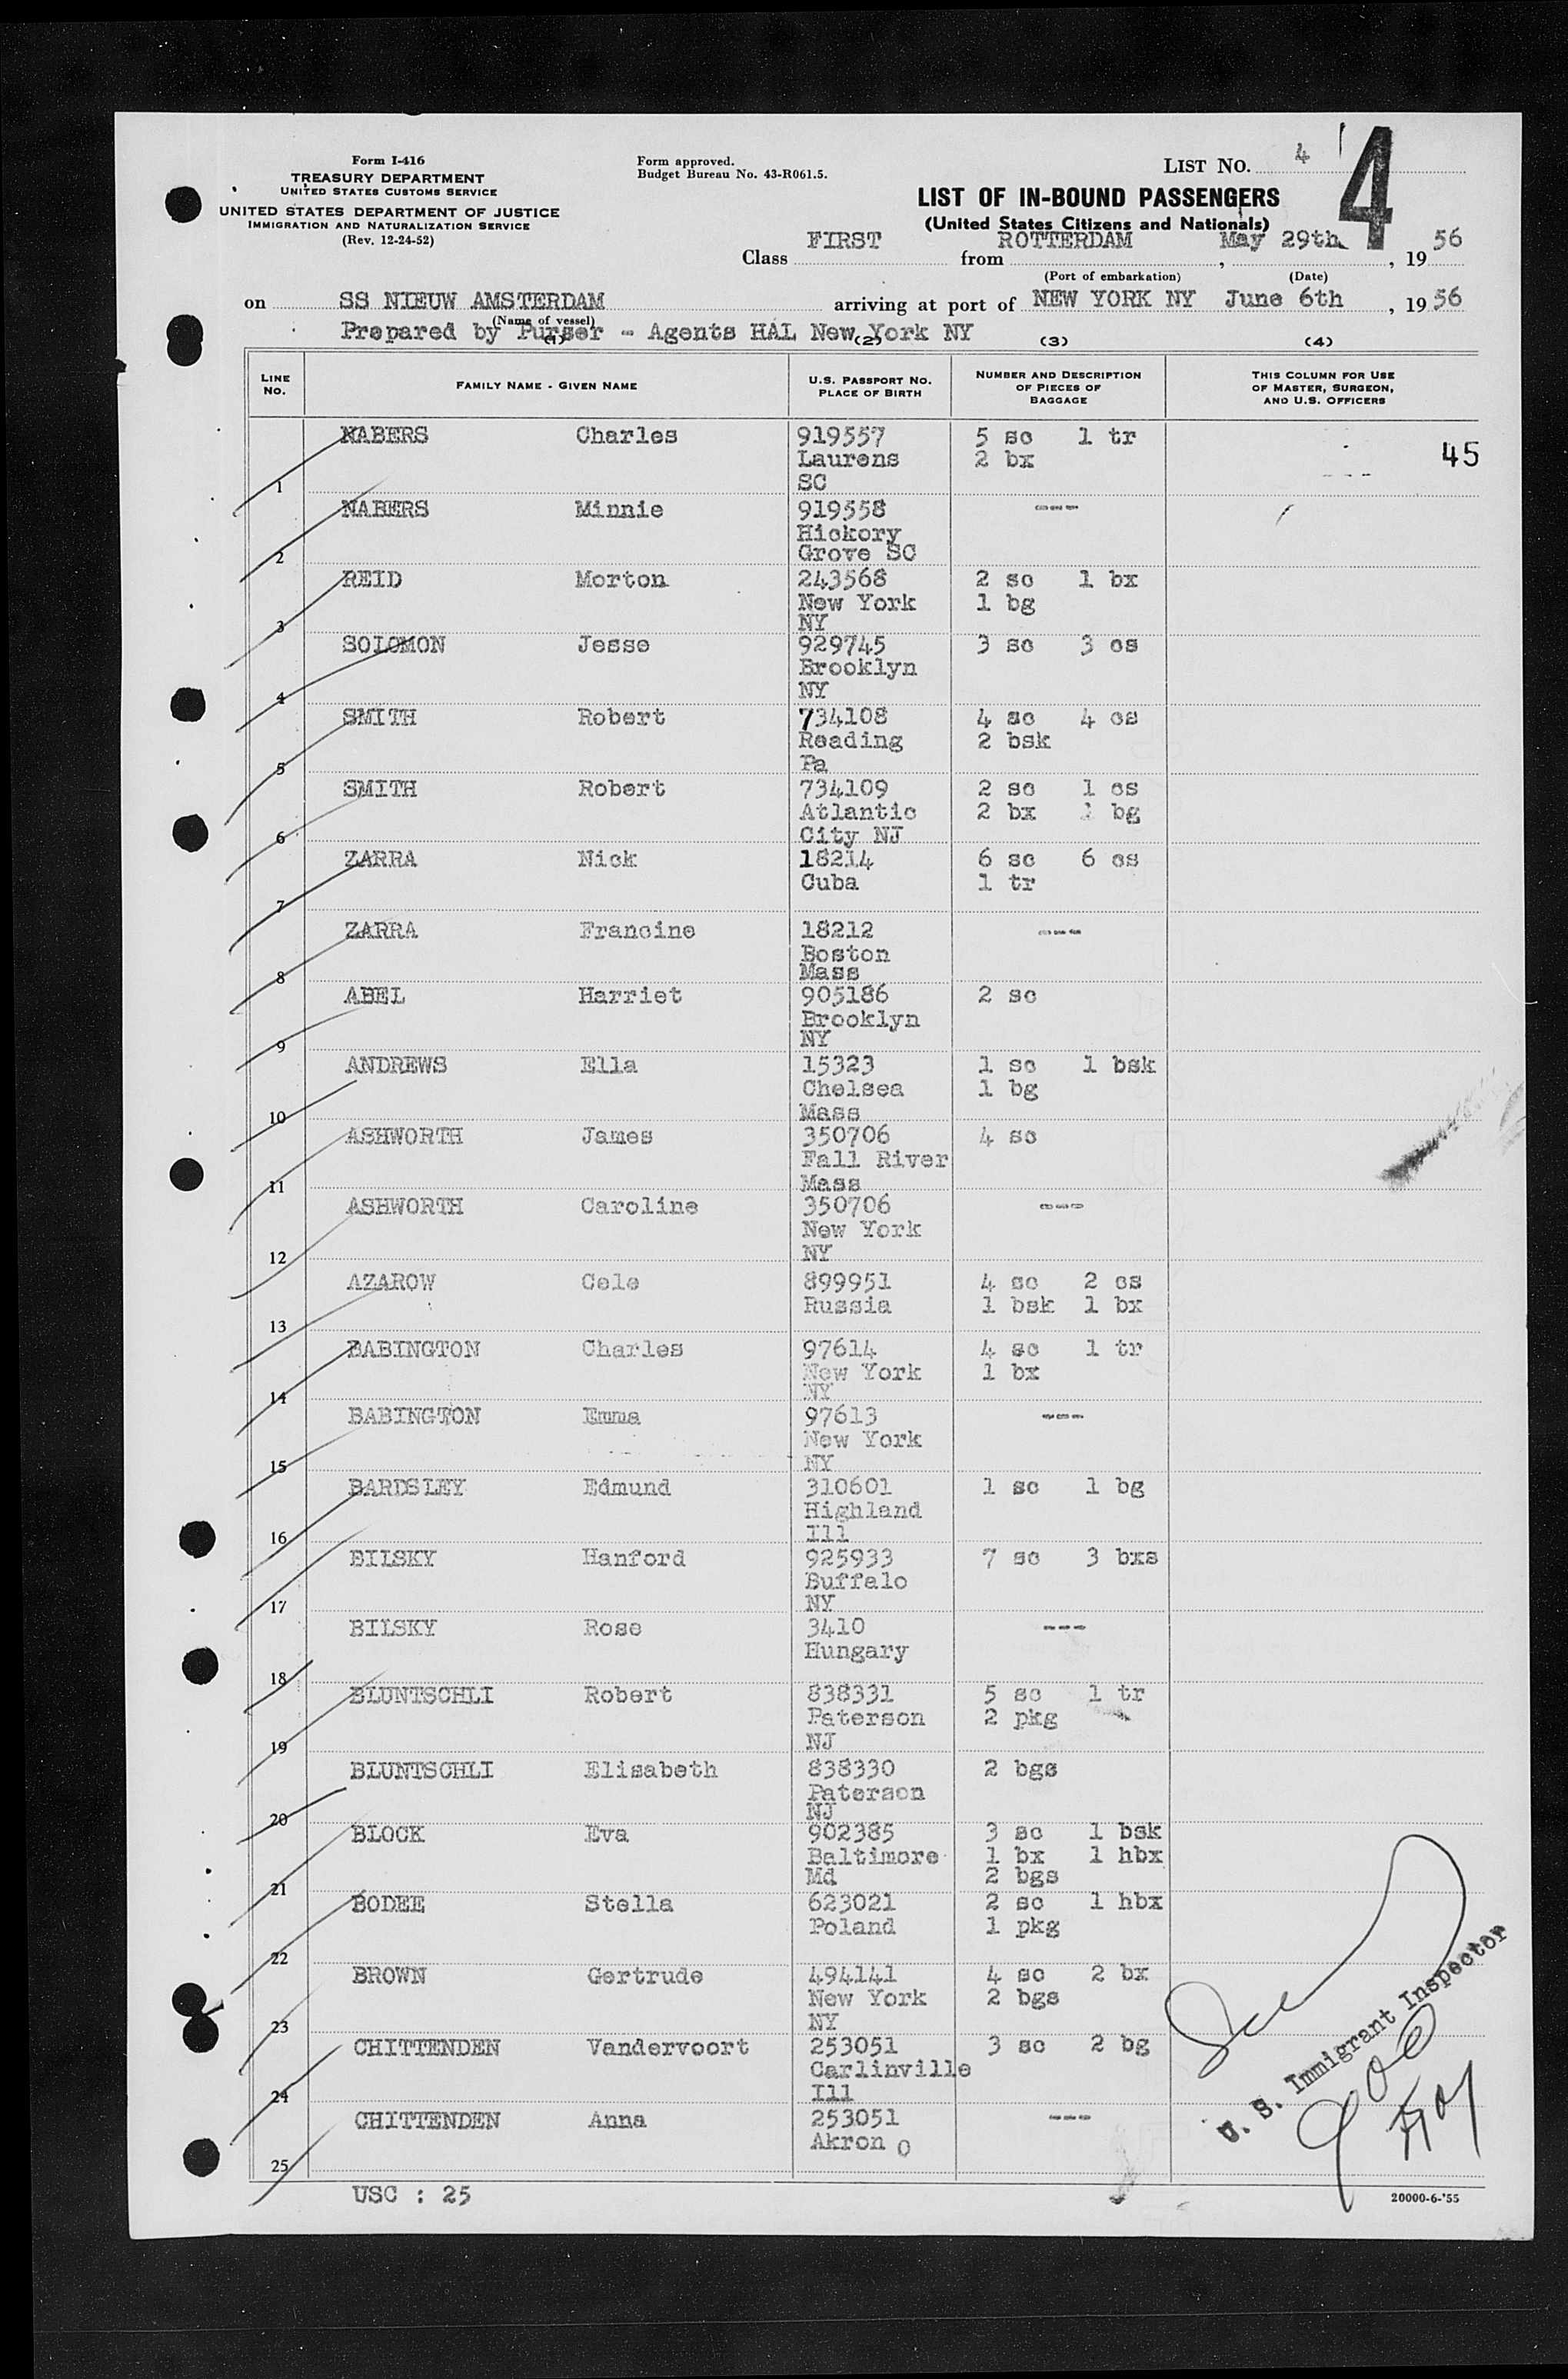 Form I-416
TREASURY DEPARTMENT
UNITED STATES CUSTOMS SERVICE
UNITED STATES DEPARTMENT OF JUSTICE
IMMIGRATION AND NATURALIZATION SERVICE
(Rev. 12-24-52)
Form approved.
Budget Bureau No. 43-R061.5.
LIST NO. 4
4
LIST OF IN-BOUND PASSENGERS
(United States Citizens and Nationals)
Class FIRST from ROTTERDAM, May 29th, 1956
(Port of embarkation) (Date)
on SS NIEUW AMSTERDAM arriving at port of NEW YORK NY June 6th, 1956
(Name of vessel)
Prepared by Purser - Agents HAL New York NY
(1) (2) (3) (4)
LINE NO. FAMILY NAME - GIVEN NAME U.S. PASSPORT NO. PLACE OF BIRTH NUMBER AND DESCRIPTION OF PIECES OF BAGGAGE THIS COLUMN FOR USE OF MASTER, SURGEON, AND U.S. OFFICERS
NABERS Charles 919557 5 sc 1 tr 45
Laurens 2 bx
1 SC
NABERS Minnie 919558 ---
Hickory
2 Grove SC
REID Morton 243568 2 sc 1 bx
New York 1 bg
3 NY
SOLOMON Jesse 929745 3 sc 3 cs
Brooklyn
4 NY
SMITH Robert 734108 4 sc 4 cs
Reading 2 bsk
5 Pa
SMITH Robert 734109 2 sc 1 cs
Atlantic 2 bx 1 bg
6 City NJ
ZARRA Nick 18214 6 sc 6 cs
Cuba 1 tr
7
ZARRA Francine 18212 ---
Boston
8 Mass
ABEL Harriet 905186 2 sc
Brooklyn
9 NY
ANDREWS Ella 15323 1 sc 1 bsk
Chelsea 1 bg
10 Mass
ASHWORTH James 350706 4 sc
Fall River
11 Mass
ASHWORTH Caroline 350706 ---
New York
12 NY
AZAROW Cele 899951 4 sc 2 cs
Russia 1 bsk 1 bx
13
BABINGTON Charles 97614 4 sc 1 tr
New York 1 bx
14 NY
BABINGTON Emma 97613 ---
New York
15 NY
BARDSLEY Edmund 310601 1 sc 1 bg
Highland
16 Ill
BILSKY Hanford 925933 7 sc 3 bxs
Buffalo
17 NY
BILSKY Rose 3410 ---
Hungary
18
BLUNTSCHLI Robert 838331 5 sc 1 tr
Paterson 2 pkg
19 NJ
BLUNTSCHLI Elisabeth 838330 2 bgs
Paterson
20 NJ
BLOCK Eva 902385 3 sc 1 bsk
Baltimore 1 bx 1 hbx
21 Md 2 bgs
BODEE Stella 623021 2 sc 1 hbx
Poland 1 pkg
22
BROWN Gertrude 494141 4 sc 2 bx
New York 2 bgs
23 NY
CHITTENDEN Vandervoort 253051 3 sc 2 bg
Carlinville
24 Ill
CHITTENDEN Anna 253051 ---
Akron O
25
U. S. Immigrant Inspector
USC : 25
20000-6-'55